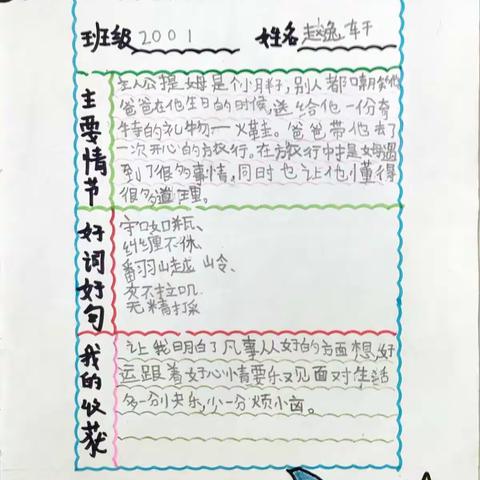 班级 2001 姓名 赵逸轩
主要情节
主人公提姆是个小胖子,别人都嘲笑他
爸爸在他生日的时候,送给他一份奇
特的礼物——火鞋。爸爸带他去了
一次开心的旅行。在旅行中提姆遇
到了很多事情,同时也让他懂得
很多道理。
好词好句
守口如瓶、
纠缠不休、
翻山越岭、
灰不拉叽
无精打采
我的收获
让我明白了凡事从好的方面想,好
运跟着好心情要乐观面对生活
多一分快乐,少一分烦恼。